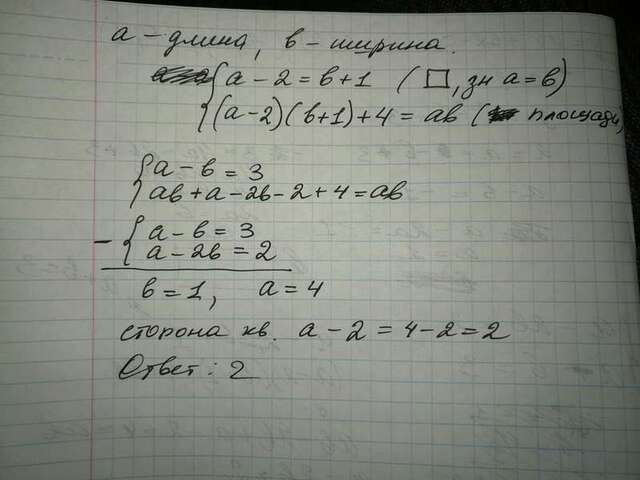 а - длина, в - ширина.
{ а - 2 = в + 1 ( □, зн а = в)
{ (а - 2)(в + 1) + 4 = ав ( площади)
{ а - в = 3
{ ав + а - 2в - 2 + 4 = ав
- { а - в = 3
{ а - 2в = 2
в = 1, а = 4
сторона кв. а - 2 = 4 - 2 = 2
Ответ: 2